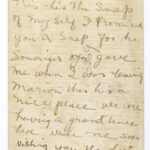 this is the Snap
of My Self I Promised
you A Snap for the
Souvenir you gave
me when I was leaving
Marion this is a
nice place we are
having a grand time
here
wishing you